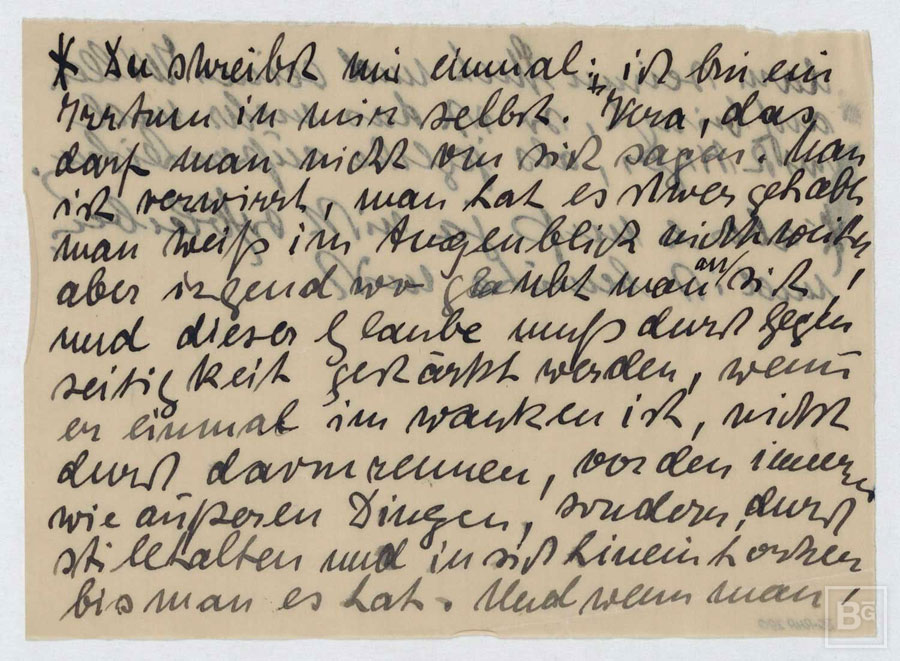 * Du schreibst mir einmal: „ich bin ein
Irrtum in mir selbst." Vera, das
darf man nicht von sich sagen. Man
ist verwirrt, man hat es schwer gehabt
man weiß im Augenblick nicht weiter
aber irgendwo glaubt man an sich,
und dieser Glaube muß durch gegen
seitigkeit gestärkt werden, wenn
er einmal im wanken ist, nicht
durch davonrennen, vor den
wie äußeren Dingen, sondern durch
stillhalten und in sich hineinhorchen
bis man es hat. Und wenn man
BG